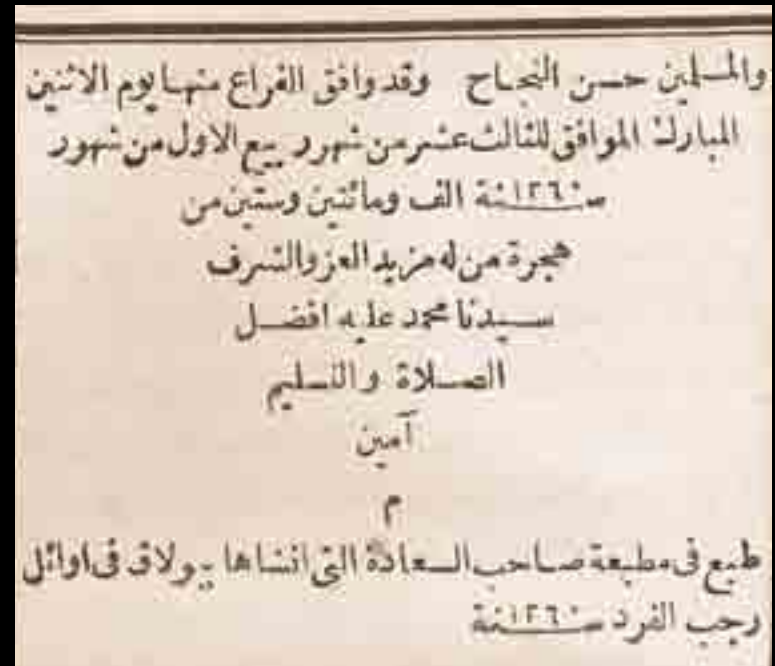 والمسلمين حسن النجاح وقد وافق الفراغ منها يوم الاثنين
المبارك الموافق للثالث عشر من شهر ربيع الاول من شهور
سنة ١٢٦٠ الف ومائتين وستين من
هجرة من له مزيد العز والشرف
سيدنا محمد عليه افضل
الصلاة والتسليم
آمين
م
طبع فى مطبعة صاحب السعادة التى انشاها ببولاق فى اوائل
رجب الفرد سنة ١٢٦٠